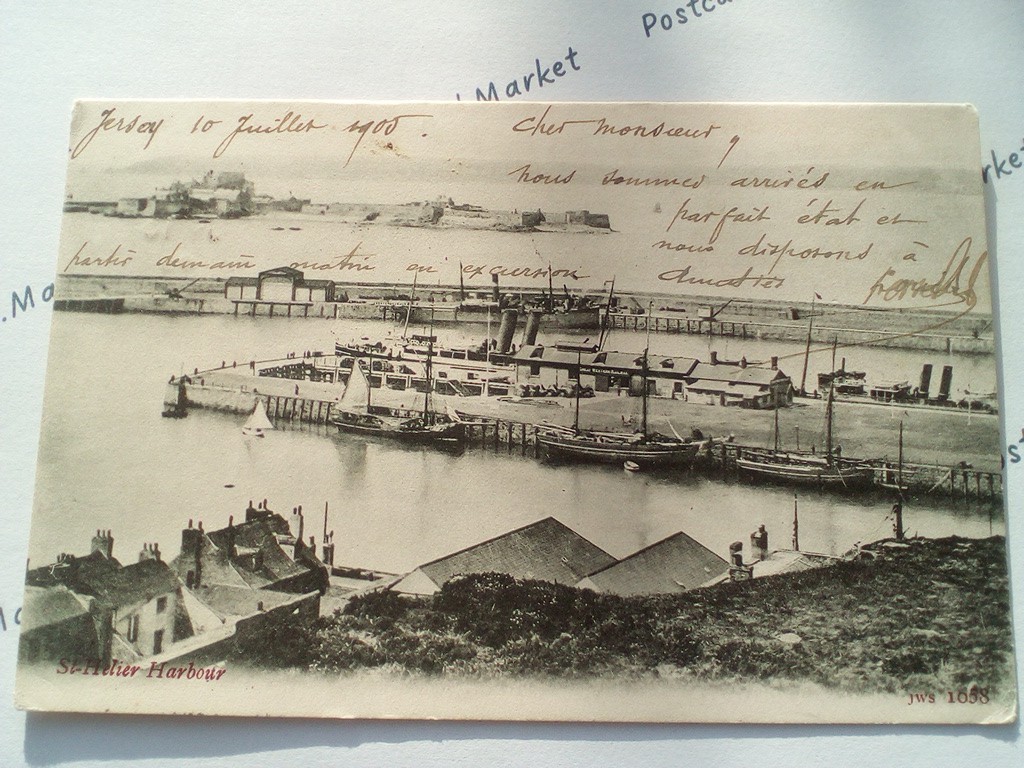 Postca
Market
Jersey 10 Juillet 1905.
Cher monsieur,
nous sommes arrivés en
parfait état et
nous disposons à
partir demain matin en excursion
rket
.Ma
GREAT WESTERN RAILWAY
St-Helier Harbour
JWS 1058